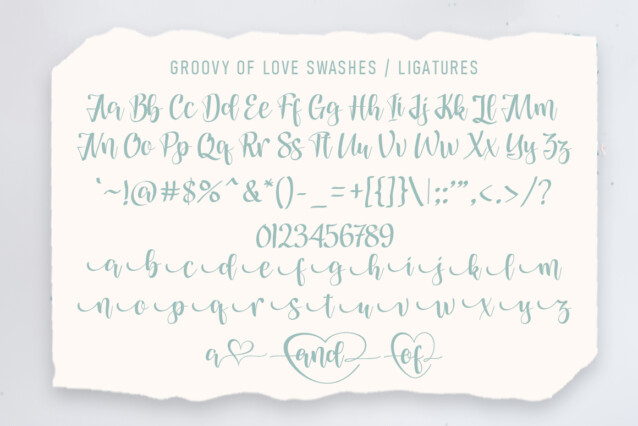 GROOVY OF LOVE SWASHES / LIGATURES
Aa Bb Cc Dd Ee Ff Gg Hh Ii Jj Kk Ll Mm
Nn Oo Pp Qq Rr Ss Tt Uu Vv Ww Xx Yy Zz
`~!@#$%^&*()-_=+[{]}\|;:'”,<.>/?
0123456789
a b c d e f g h i j k l m
n o p q r s t u v w x y z
a and of